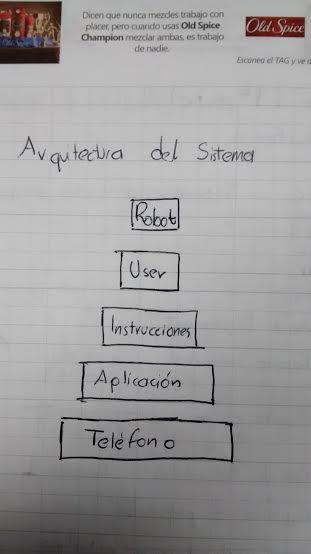 Dicen que nunca mezcles trabajo con
placer, pero cuando usas Old Spice
Champion mezclar ambas, es trabajo
de nadie.
Old Spice
Escanea el TAG y ve a
Arqutectura del Sistema
Robot
User
Instrucciones
Aplicación
Teléfono